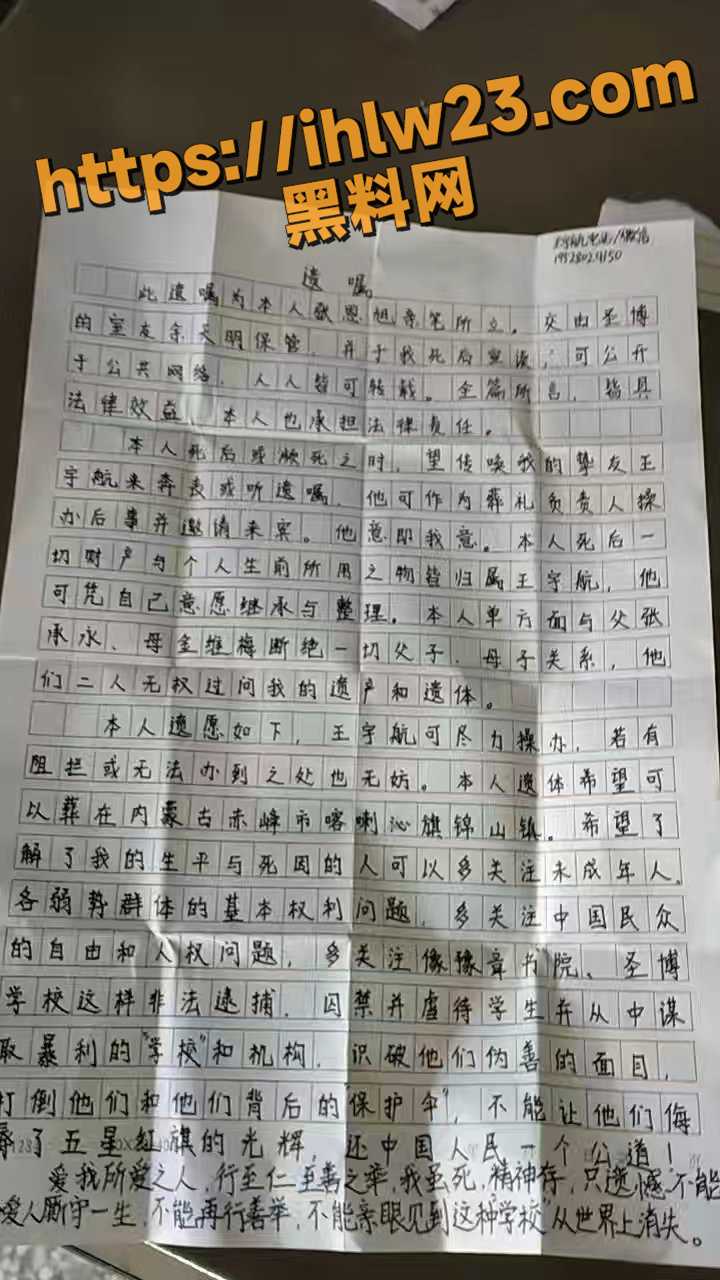 https://ihlw23.com
黑料网
遗嘱
此遗嘱为本人张恩旭亲笔所立。交由圣博
的室友余天明保管,并于我死后宣读;可公开
于公共网络,人人皆可转载。全篇所言,皆具
法律效益,本人也承担法律责任。
本人死后或濒死之时,望传唤我的挚友王
宇航来奔丧或听遗嘱,他可作为葬礼负责人操
办后事并邀请来宾。他意即我意。本人死后一
切财产与个人生前所用之物皆归属王宇航,他
可凭自己意愿继承与整理。本人单方面与父张
承永、母金维梅断绝一切父子、母子关系,他
们二人无权过问我的遗产和遗体。
本人遗愿如下,王宇航可尽力操办,若有
阻拦或无法办到之处也无妨。本人遗体希望可
以葬在内蒙古赤峰市喀喇沁旗锦山镇。希望了
解了我的生平与死因的人可以多关注未成年人。
各弱势群体的基本权利问题,多关注中国民众
的自由和人权问题,多关注像豫章书院、圣博
学校这样非法逮捕,囚禁并虐待学生并从中谋
取暴利的"学校"和机构,识破他们伪善的面目,
打倒他们和他们背后的"保护伞",不能让他们侮
辱了五星红旗的光辉,还中国人民一个公道!
爱我所爱之人,行至仁至善之举,我虽死,精神存,只遗憾不能
爱人厮守一生,不能再行善举,不能亲眼见到这种"学校"从世界上消失。